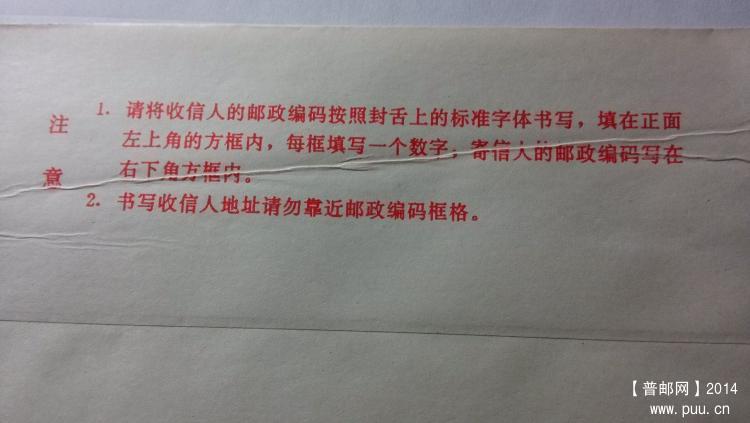 注意
1. 请将收信人的邮政编码按照封舌上的标准字体书写，填在正面
左上角的方框内，每框填写一个数字；寄信人的邮政编码写在
右下角方框内。
2. 书写收信人地址请勿靠近邮政编码框格。
【普邮网】2014
www.puu.cn